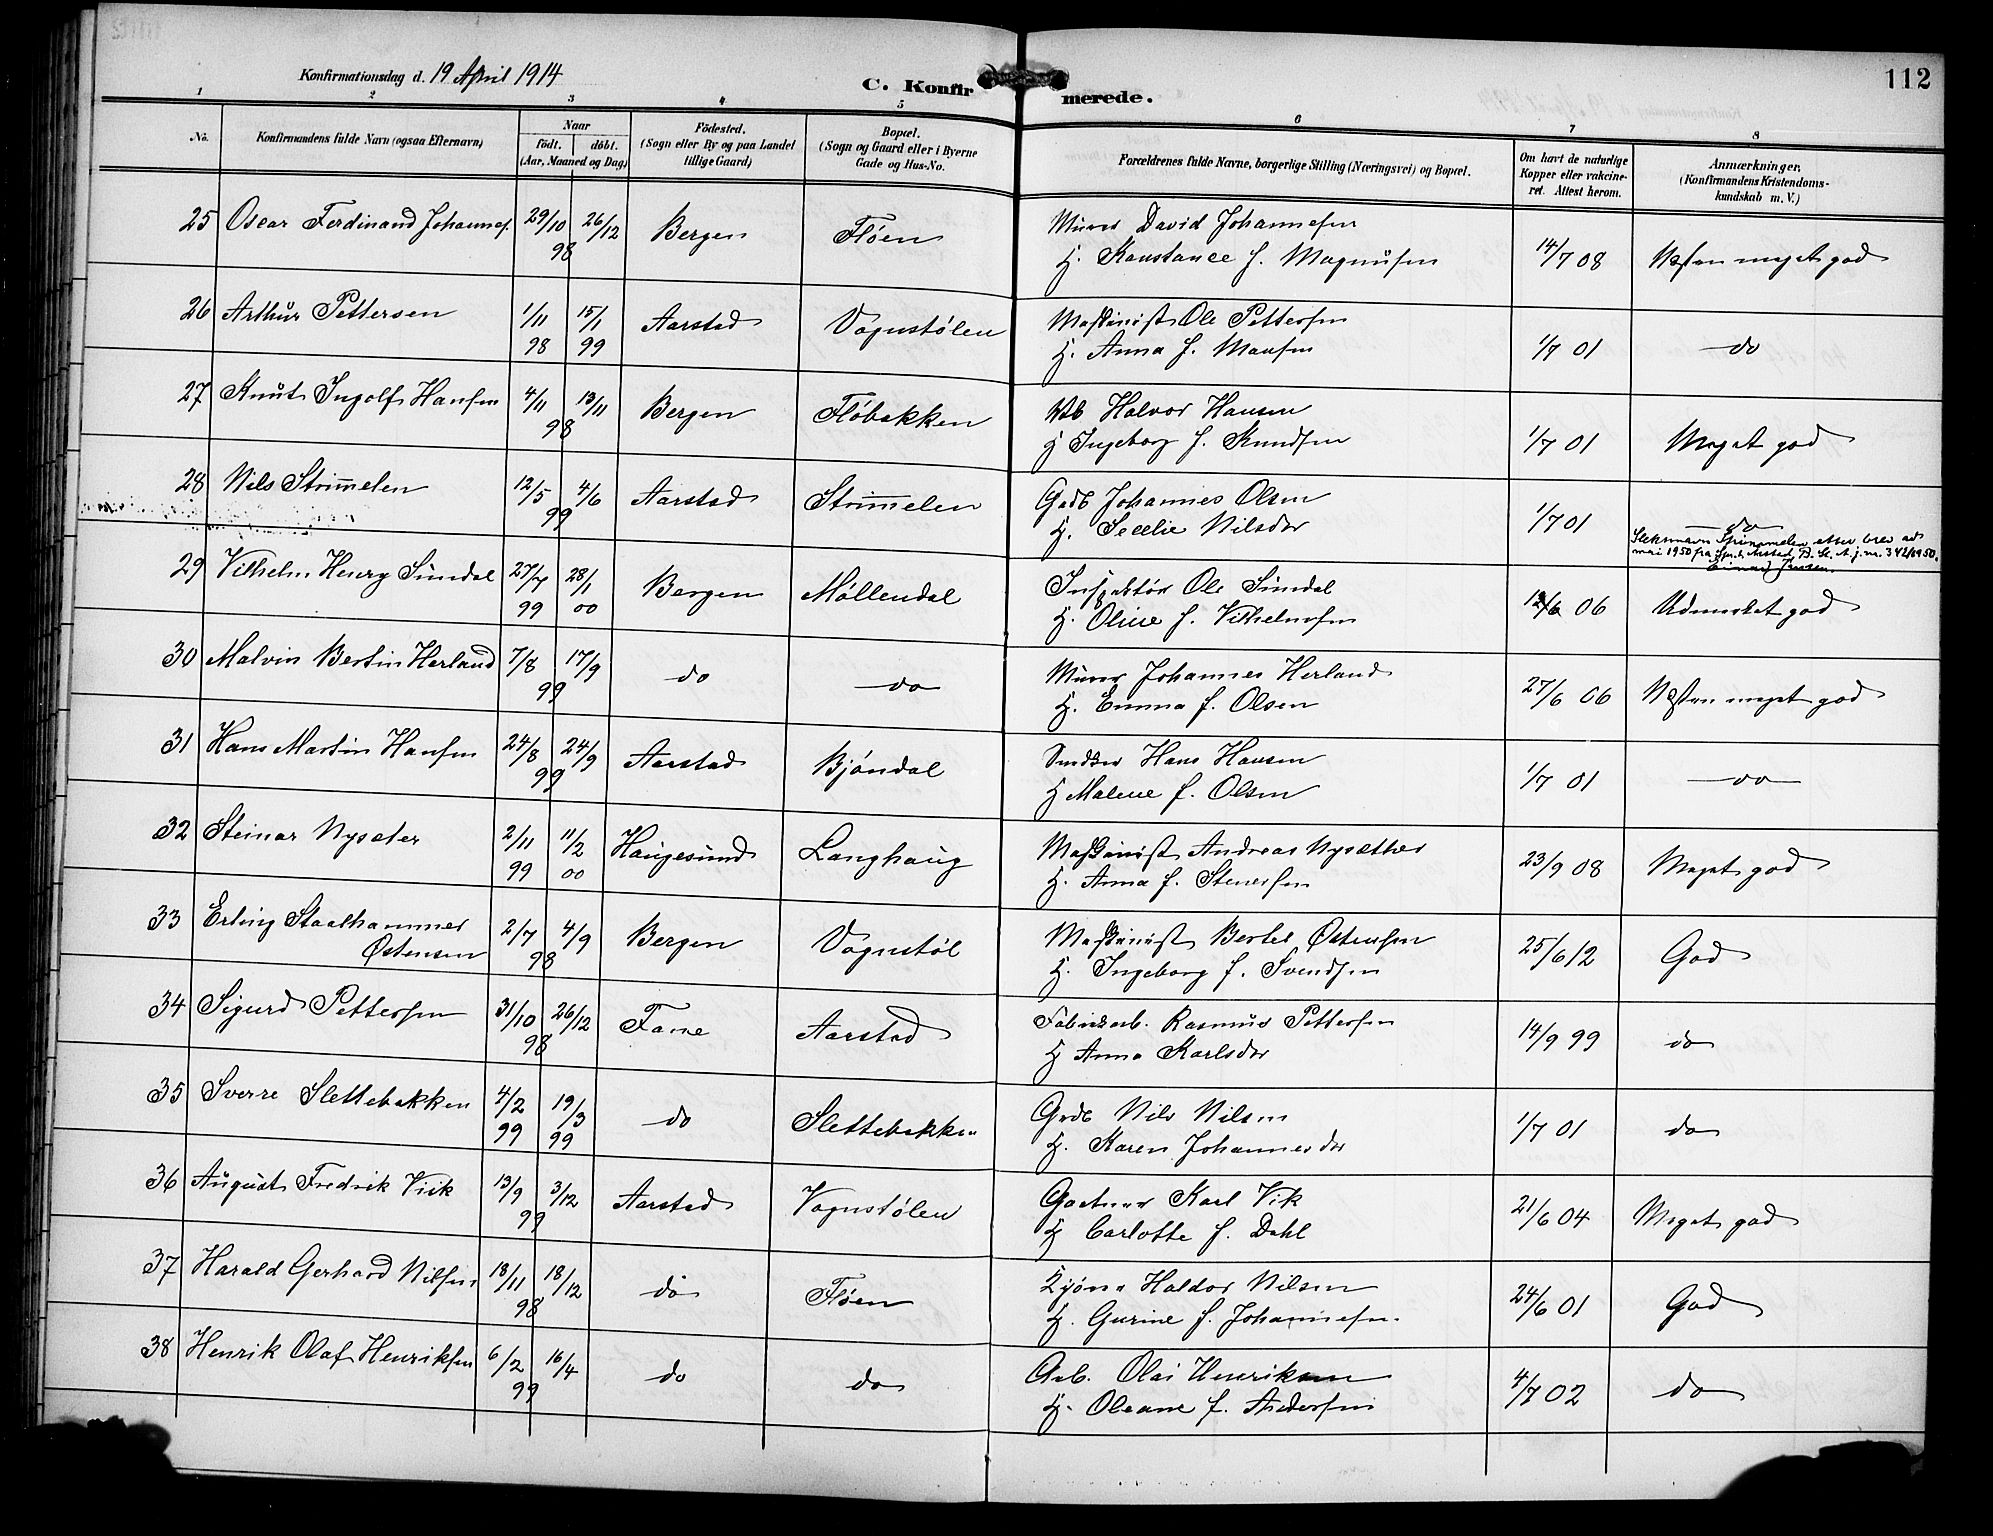 Konfirmationsdag d. 19 April 1914
C. Konfir merede. 112
1 2 3 4 5 6 7 8
No. Konfirmandens fulde Navn (ogsaa Efternavn) Naar födt. döbt. (Aar, Maaned og Dag) Födested. (Sogn eller By og paa Landet tillige Gaard) Bopæl. (Sogn og Gaard eller i Byerne Gade og Hus-No. Forældrenes fulde Navne, borgerlige Stilling (Næringsvei) og Bopæl. Om havt de naturlige Kopper eller vakcineret. Attest herom. Anmærkninger. (Konfirmandens Kristendomskundskab m. V.)
25 Oscar Ferdinand Johannes. 29/10 26/12 98 Bergen Fløen Murer David Johannesen
H. Konstance f. Magnusen 14/7 08 Næsten meget god
26 Arthur Pettersen 1/11 98 15/1 99 Aarstad Vognstølen Maskinist Ole Pettersen
H. Anna f. Monsen 1/7 01 do
27 Knut Ingolf Hansen 4/11 13/11 98 Bergen Fløbakken Halvor Hansen
H Ingeborg f. Knudsen 1/7 01 Meget god
28 Nils Strimmelen 12/5 4/6 99 Aarstad Strimmelen Gadb Johannes Olsen
H. Secelie Nilsdor 1/7 01 do
Slektsnavn etter brev av
mai 1950 fra Årstad, B. St. A. j. nr. 342/1950.
29 Vilhelm Henry Sundal 27/7 99 28/1 00 Bergen Møllendal Inspektør Ole Sundal
H. Oline f. Vilhelmsen 06 Udmerket god
30 Malvin Bertin Herland 7/8 17/9 99 do do Murer Johannes Herland
H. Emma f. Olsen 27/6 06 Næsten meget god
31 Hans Martin Hansen 24/8 24/9 99 Aarstad Bjøndal Snedker Hans Hansen
H Malene f. Olsen 1/7 01 do
32 Steinar Nysæter 2/11 99 11/2 00 Haugesund Langhaug Maskinist Andreas Nysæther
H. Anna f. Stenersen 23/9 08 Meget god
33 Erling Staalhammer
Østensen 2/7 4/9 98 Bergen Vognstøl Maskinist Bertel Østensen
H. Ingeborg f. Svendsen 25/6 12 God
34 Sigurd Pettersen 31/10 26/12 98 Fane Aarstad Fabrikarb. Rasmus Pettersen
H Anna Karlsdor 14/9 99 do
35 Sverre Slettebakken 4/2 99 19/3 99 do Slettebakken Grdb Nils Nilsen
H. Karen Johannesdor 1/7 01 do
36 August Fredrik Viik 13/9 3/12 99 Aarstad Vognstølen Gartner Karl Vik
H Carlotte f. Dahl 21/6 04 Meget god
37 Harald Gerhard Nilsen 18/11 18/12 98 do Fløen Haldor Nilsen
H. Gurine f. Johannesen. 24/6 01 God
38 Henrik Olaf Henriksen 6/2 16/4 99 do do Arb. Olai Henriksen
H. Oleane f. Andersen 4/7 02 do